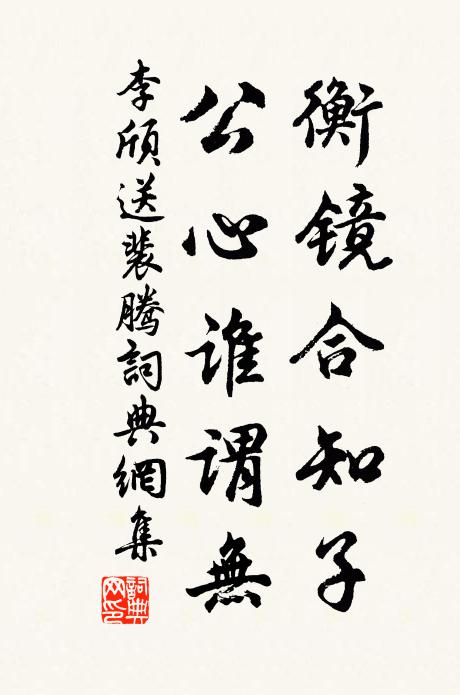 衡镜合知子
公心谁謂無
李颀送裴腾詞典網集
詞典網印